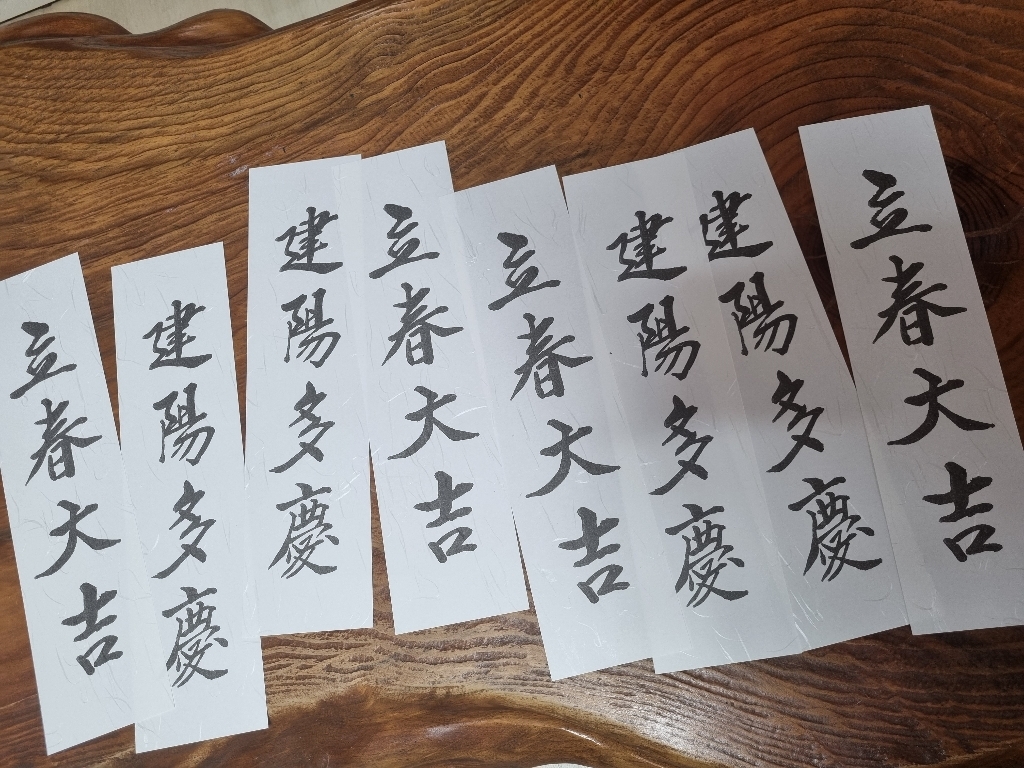 立春大吉
建陽多慶
建陽多慶
立春大吉
立春大吉
建陽多慶
建陽多慶
立春大吉